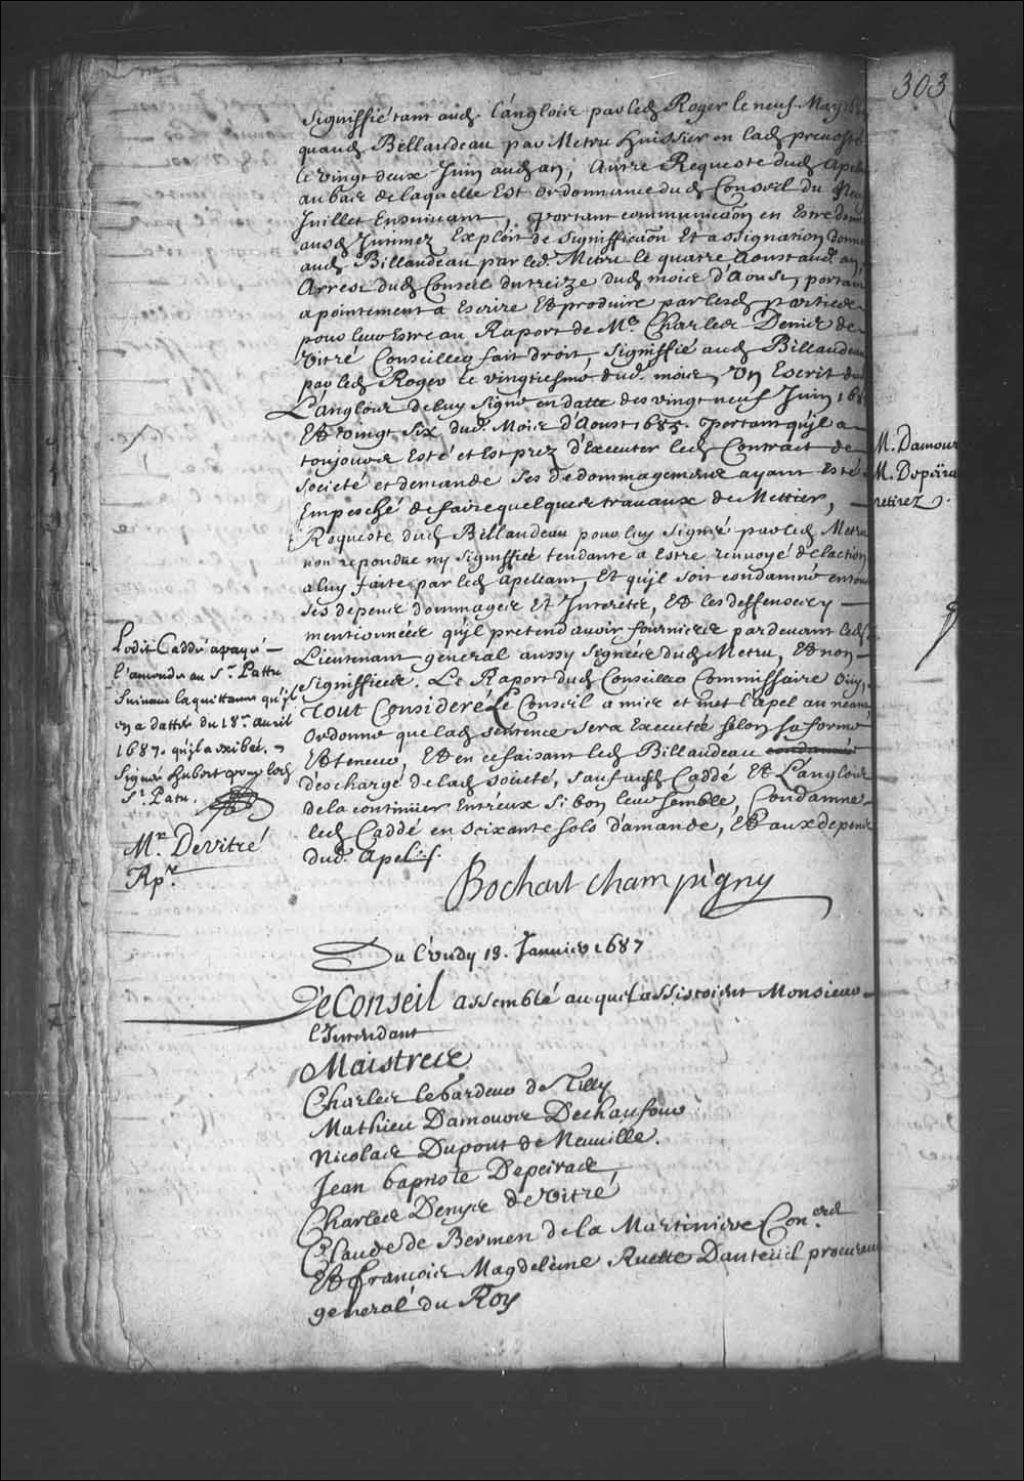 303
Signiffié tant aud. Langlois par led. Roger le neuf. May
quaud. Billaudeau par Metru huissier en lad. prevosté
le vingt deux Juin aud. an, Autre Requeste dud. Apell
au bas de laquelle Est Ordonnance du d. Conseil du
Juillet Ensuivant, portant communicaõn en Estre donné
ausd. Intimez Exploit de signifficaõn Et assignation donné
aud. Billaudeau par led. Metru le quatre Aoust aud. an,
Arrest dud. Conseil du treize dud. mois d'Aoust, portant
apointement a Escrire Et produire par lesd. parties
pour leur Estre au Raport de Me. Charles Denis de
Vitré Conseiller fait droit, signiffié aud. Billaudeau
par led. Roger le vingtiesme dud. mois, Un Escrit dud.
Langlois de luy signé en datte des vingt neuf Juin 168
Et vingt six dud. Mois d'Aoust 1685. portant qu'il a
toujours Esté et Est prez d'Executer led. Contract de
societé et demande ses dedommagemens ayant Esté
Empesché de faire quelques travaux de Mettier,
Requeste dud. Billaudeau pour luy signé par led. Metru
non repondue ny signiffiée tendante a Estre renvoyé de laction
a luy faite par led. apellant, Et qu'il soit condamné en tous
ses depens dommages Et Interests, Et les deffenses y
mentionnées qu'il pretend avoir fournies pardevant led. Sr.
Lieutenant general aussy signées dud. Metru, Et non
signiffiées. Le Raport dud. Conseiller Commissaire Ouy,
Tout Consideré Le Conseil a mis et met l'apel au neant
Ordonne que lad. sentence sera Executée selon sa forme
Et teneur, Et en ce faisant led. Billaudeau condamné
deschargé de lad. societé, sauf ausd. Caddé Et Langlois
de la continuer Entr'eux si bon leur semble, Condamne
led. Caddé en soixante sols d'amande, Et aux depens
dud. Apel./.
Bochart Champigny
M. Damours
M. Depeiras
retirez.
Ledit Caddé a payé
l'amende au Sr. Pattu
suivant la quittance qu'il
en a dattée du 18e. avril
1687. qu'il a exibée,
signée hubert pour led.
Sr. Patu.
Mr. DeVitré
Rpr.
Du Lundy 13. Janvier 1687
Le Conseil assemblé auquel assistoient Monsieur
l'Intendant
Maistres
Charles le Gardeur de Tilly
Mathieu Damours Deschaufour
Nicolas Dupont de Neuville.
Jean baptiste Depeiras
Charles Denys de Vitré
Claude de Bermen de la Martiniere Con.ers
Et françois Magdeleine Ruette Dauteuil procureur
general du Roy